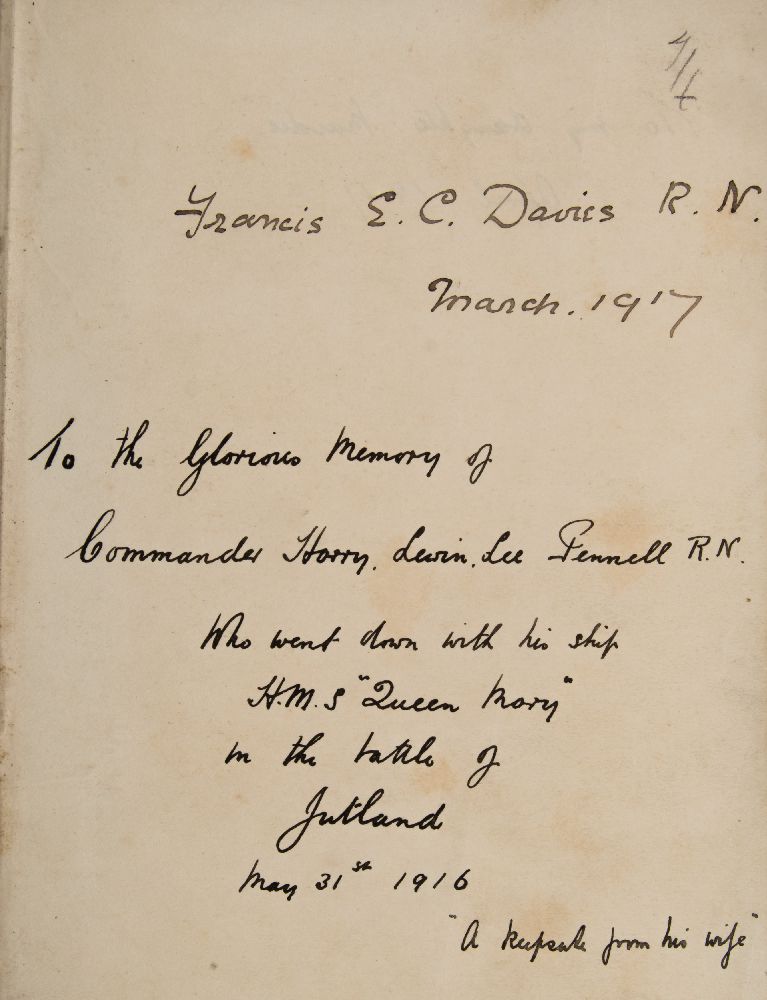 4/6
Francis E. C. Davies R. N.
March. 1917
To the Glorious Memory of
Commander Harry. Lewin. Lee Pennell R.N.
Who went down with his ship
H.M.S "Queen Mary"
in the battle of
Jutland
May 31st 1916
"A keepsake from his wife"